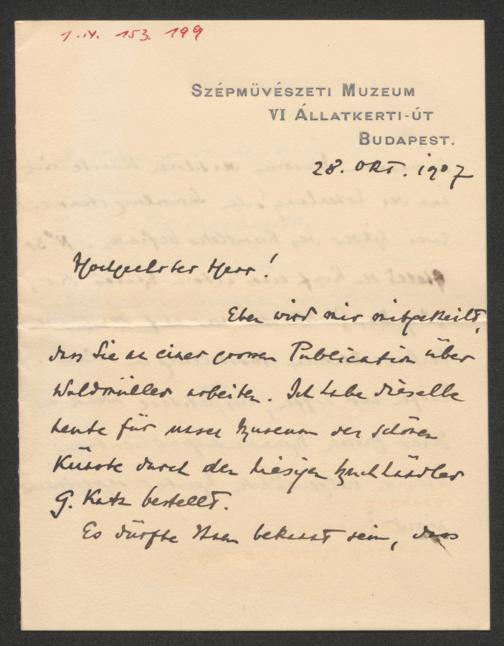 1.IV. 153.199
SZÉPMÜVÉSZETI MUZEUM
VI ÁLLATKERTI-ÚT
BUDAPEST.
28. OKT. 1907
Hochgeehrter Herr!
Eben wird mir mitgetheilt,
dass Sie an einer grossen Publication über
Waldmüller arbeiten. Ich habe dieselbe
heute für unser Museum der schönen
Künste durch den hiesigen Buchhändler
G. Katz bestellt.
Es dürfte Ihnen bekannt sein, dass